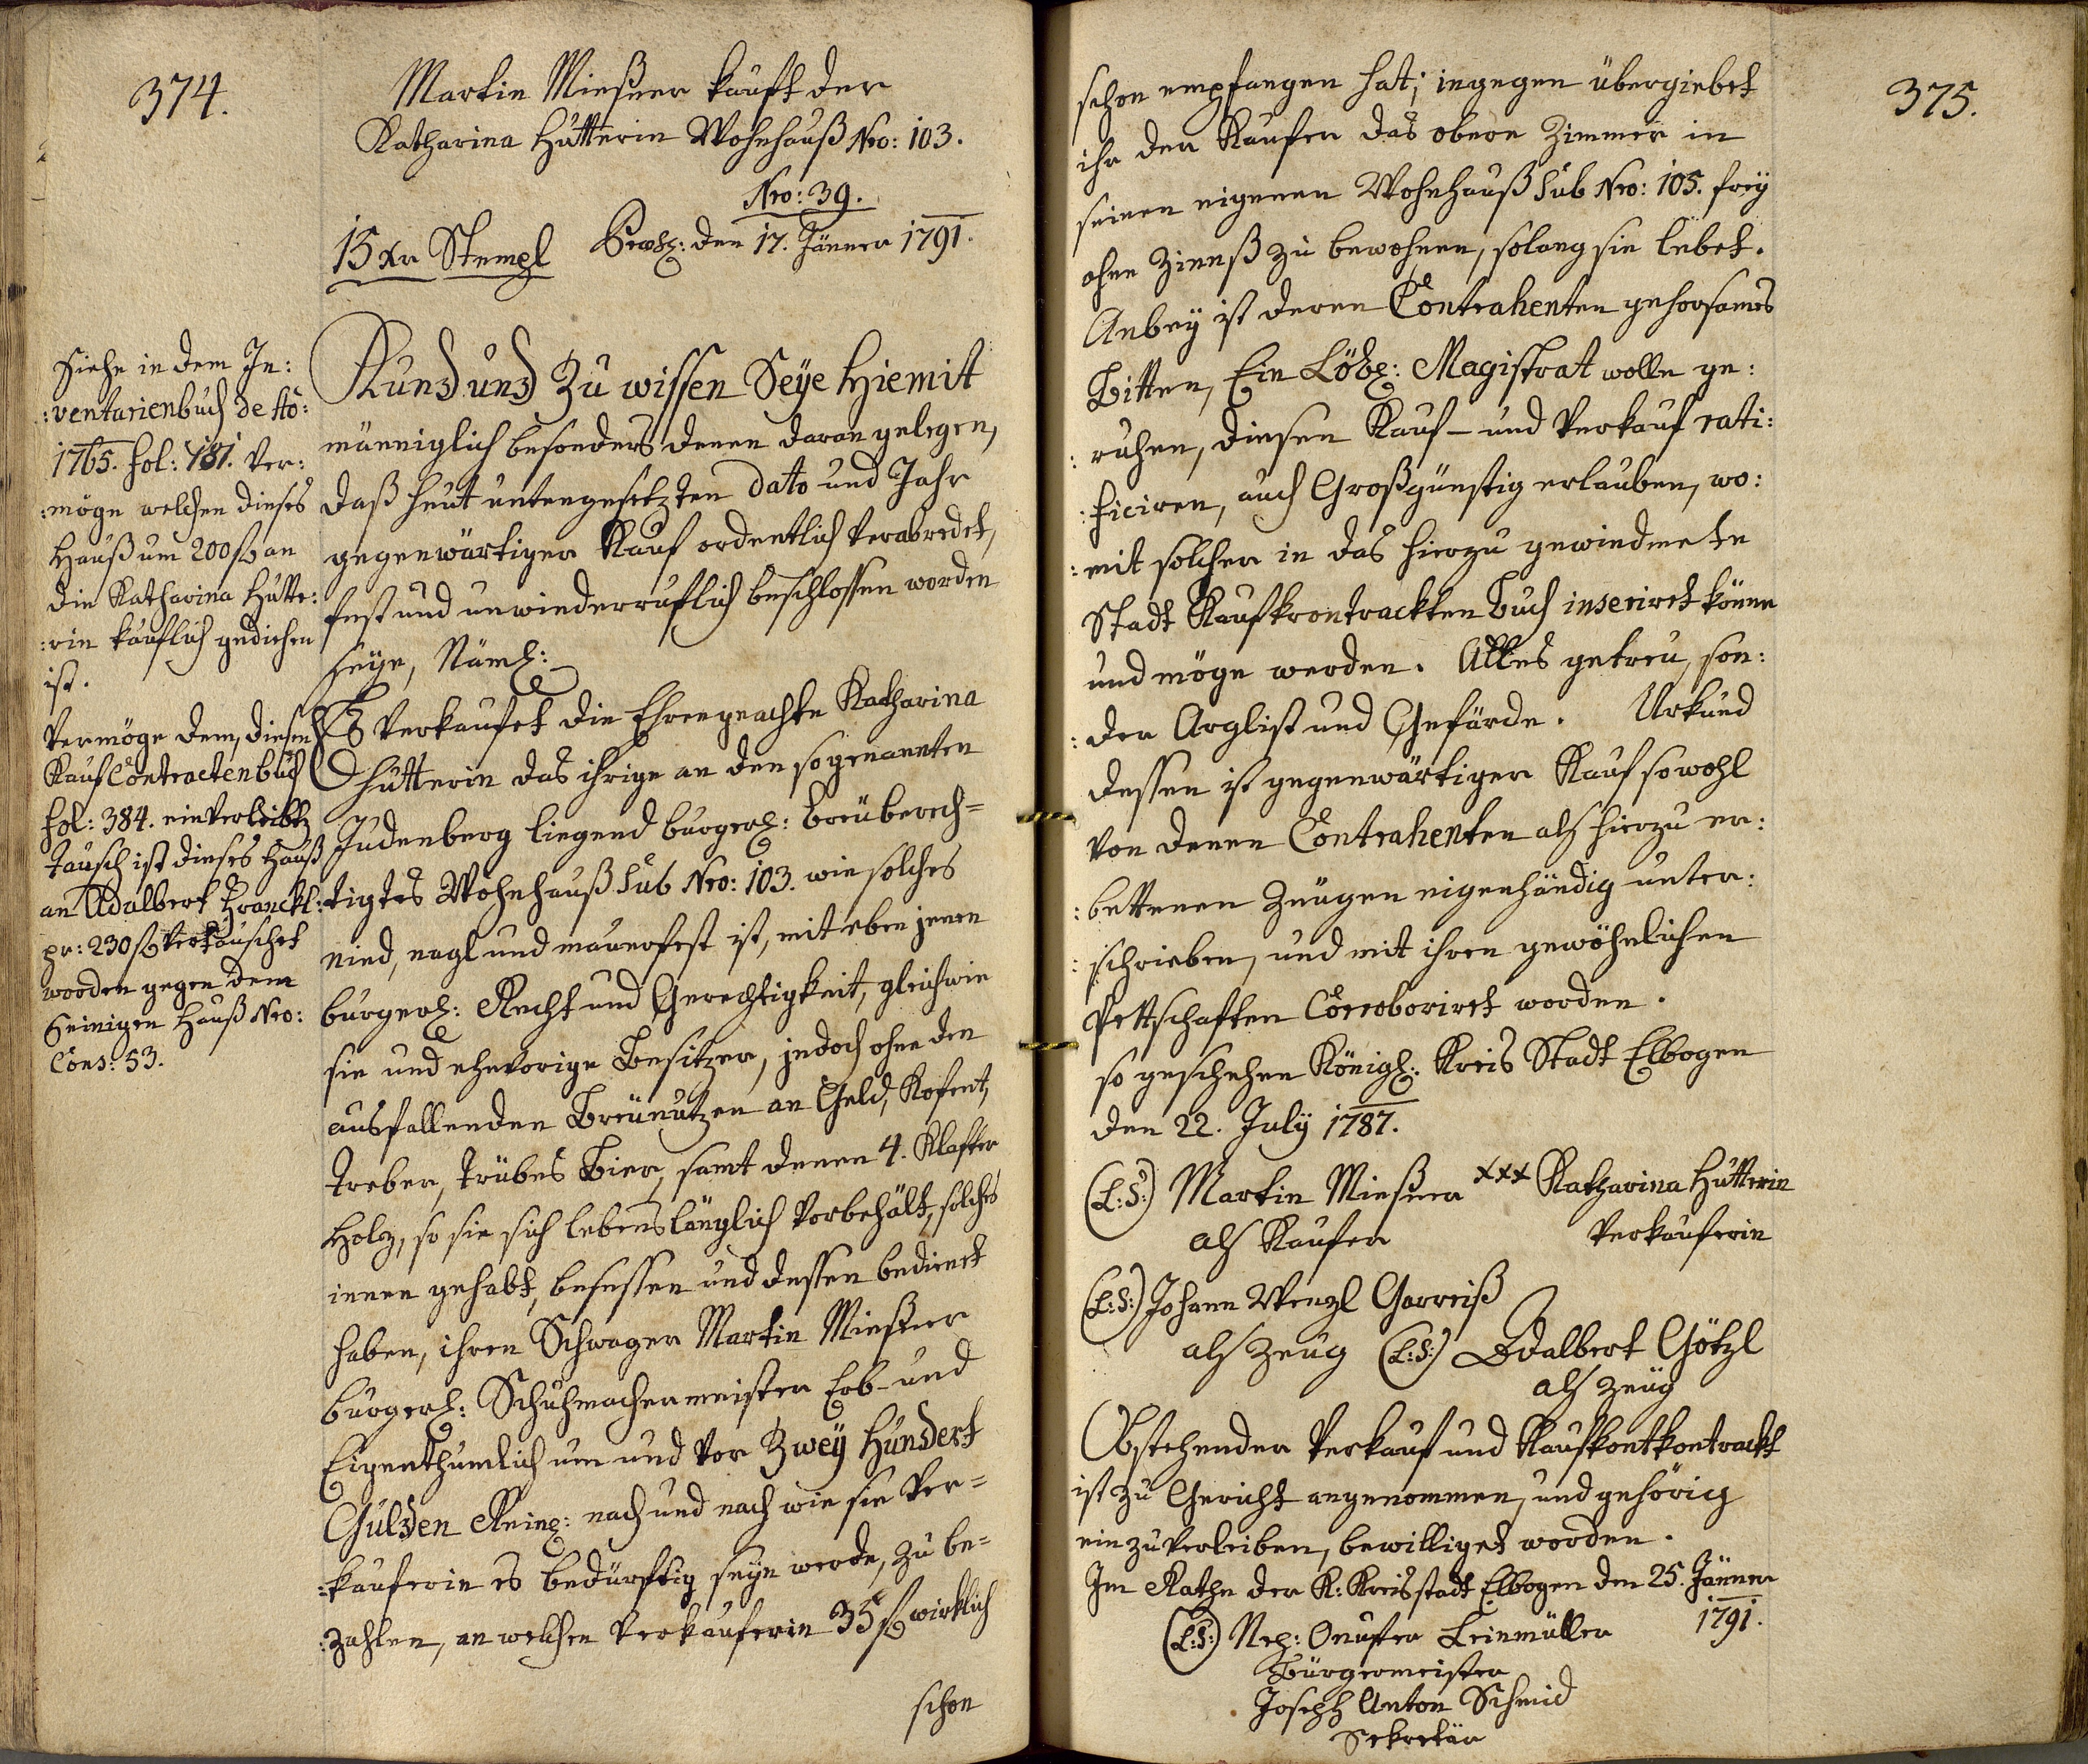 374.
Martin Mießner kauft der
Katharina Hütterin Wohnhauß Nro: 103.
Nro: 39.
15 Xr Stempl den 17. Jänner 1791.
Siehe in dem In:
:ventarienbuch de Ao:
1765. fol: 781. Ver:
:möge welchen dieses
Hauß um 200 f an
die Katharina Hütte:
:rin käuflich gediehen
ist.
Vermöge dem, diesem
Kauf Contractenbuch
fol: 384. einverleibten
Tausch ist dieses Hauß
an Adalbert Franckl
pr: 230 f vertauschet
worden gegen dem
Seinigen Hauß Nro:
Cons: 53.
Kund und Zu wissen Seye Hiemit
männiglich besonders denen daran gelegen,
daß heut untengesetzten dato und Jahr
gegenwärtiger Kauf ordentlich verabredet,
fest und unwiederruflich beschlossen worden
seye, Näml:
Es verkaufet die Ehrengeachte Katharina
Hütterin das ihrige an den sogenannten
Judenberg liegend burgerl: breüberech=
:tigtes Wohnhauß sub Nro: 103. wie solches
nied, nagl und mauerfest ist, mit eben jenen
burgerl: Recht und Gerechtigkeit, gleichwie
sie und ehevorige Besitzer, jedoch ohne den
ausfallenden Breünutzen an Geld, Kofent,
Treber, trübes Bier, samt denen 4. Klafter
Holz, so sie sich lebenslänglich vorbehält, solches
innen gehabt, besessen und dessen bedienet
haben, ihren Schwager Martin Mießner
burgerl: Schuhmachermeister Erb- und
Eigenthumlich um und vor Zwey Hundert
Gulden Reinl: nach und nach wie sie Ver=
:kauferin es bedürftig seyn werde, zu be=
:zahlen, an welchen Verkauferin 35 f wirklich
schon
375.
schon empfangen hat; ingegen übergiebet
ihr der Kaufer das obere Zimmer in
seinen eigenen Wohnhauß sub Nro: 105. frey
ohne Zienß zu bewohnen, solang sie lebet.
Anbey ist deren Contrahenten gehorsames
Bitten, Ein Löbl: Magistrat wolle ge:
:ruhen, diesen Kauf- und Verkauf rati:
:ficiren, auch Großgünstig erlauben, wo:
:mit solcher in das hierzu gewiedmete
Stadt Kaufkrontrackten Buch inseriret könne
und möge werden. Alles getreu, son:
:der Arglist und Gefärde. Urkund
dessen ist gegenwärtiger Kauf sowohl
von denen Contrahenten als hierzu er:
:bettenen Zeugen eigenhändig unter:
:schrieben, und mit ihren gewöhnlichen
Pettschaften Corroboriret worden.
so geschehen Königl: Kreis Stadt Elbogen
den 22. July 1787.
(L:S:) Martin Mießner xxx Katharina Hütterin
als Kaufer Verkauferin
(L:S:) Johann Wenzl Garreiß
als Zeug (L:S:) Adalbert Götzl
als Zeug
Obstehender Verkauf und Kaufkontkontrackt
ist zu Gericht angenommen, und gehörig
einzuverleiben, bewilliget worden.
Im Rathe der K: Kreisstadt Elbogen den 25. Jänner
1791.
(L:S:) Onufer Leinmüller
Bürgermeister
Joseph Anton Schmid
Sekretär